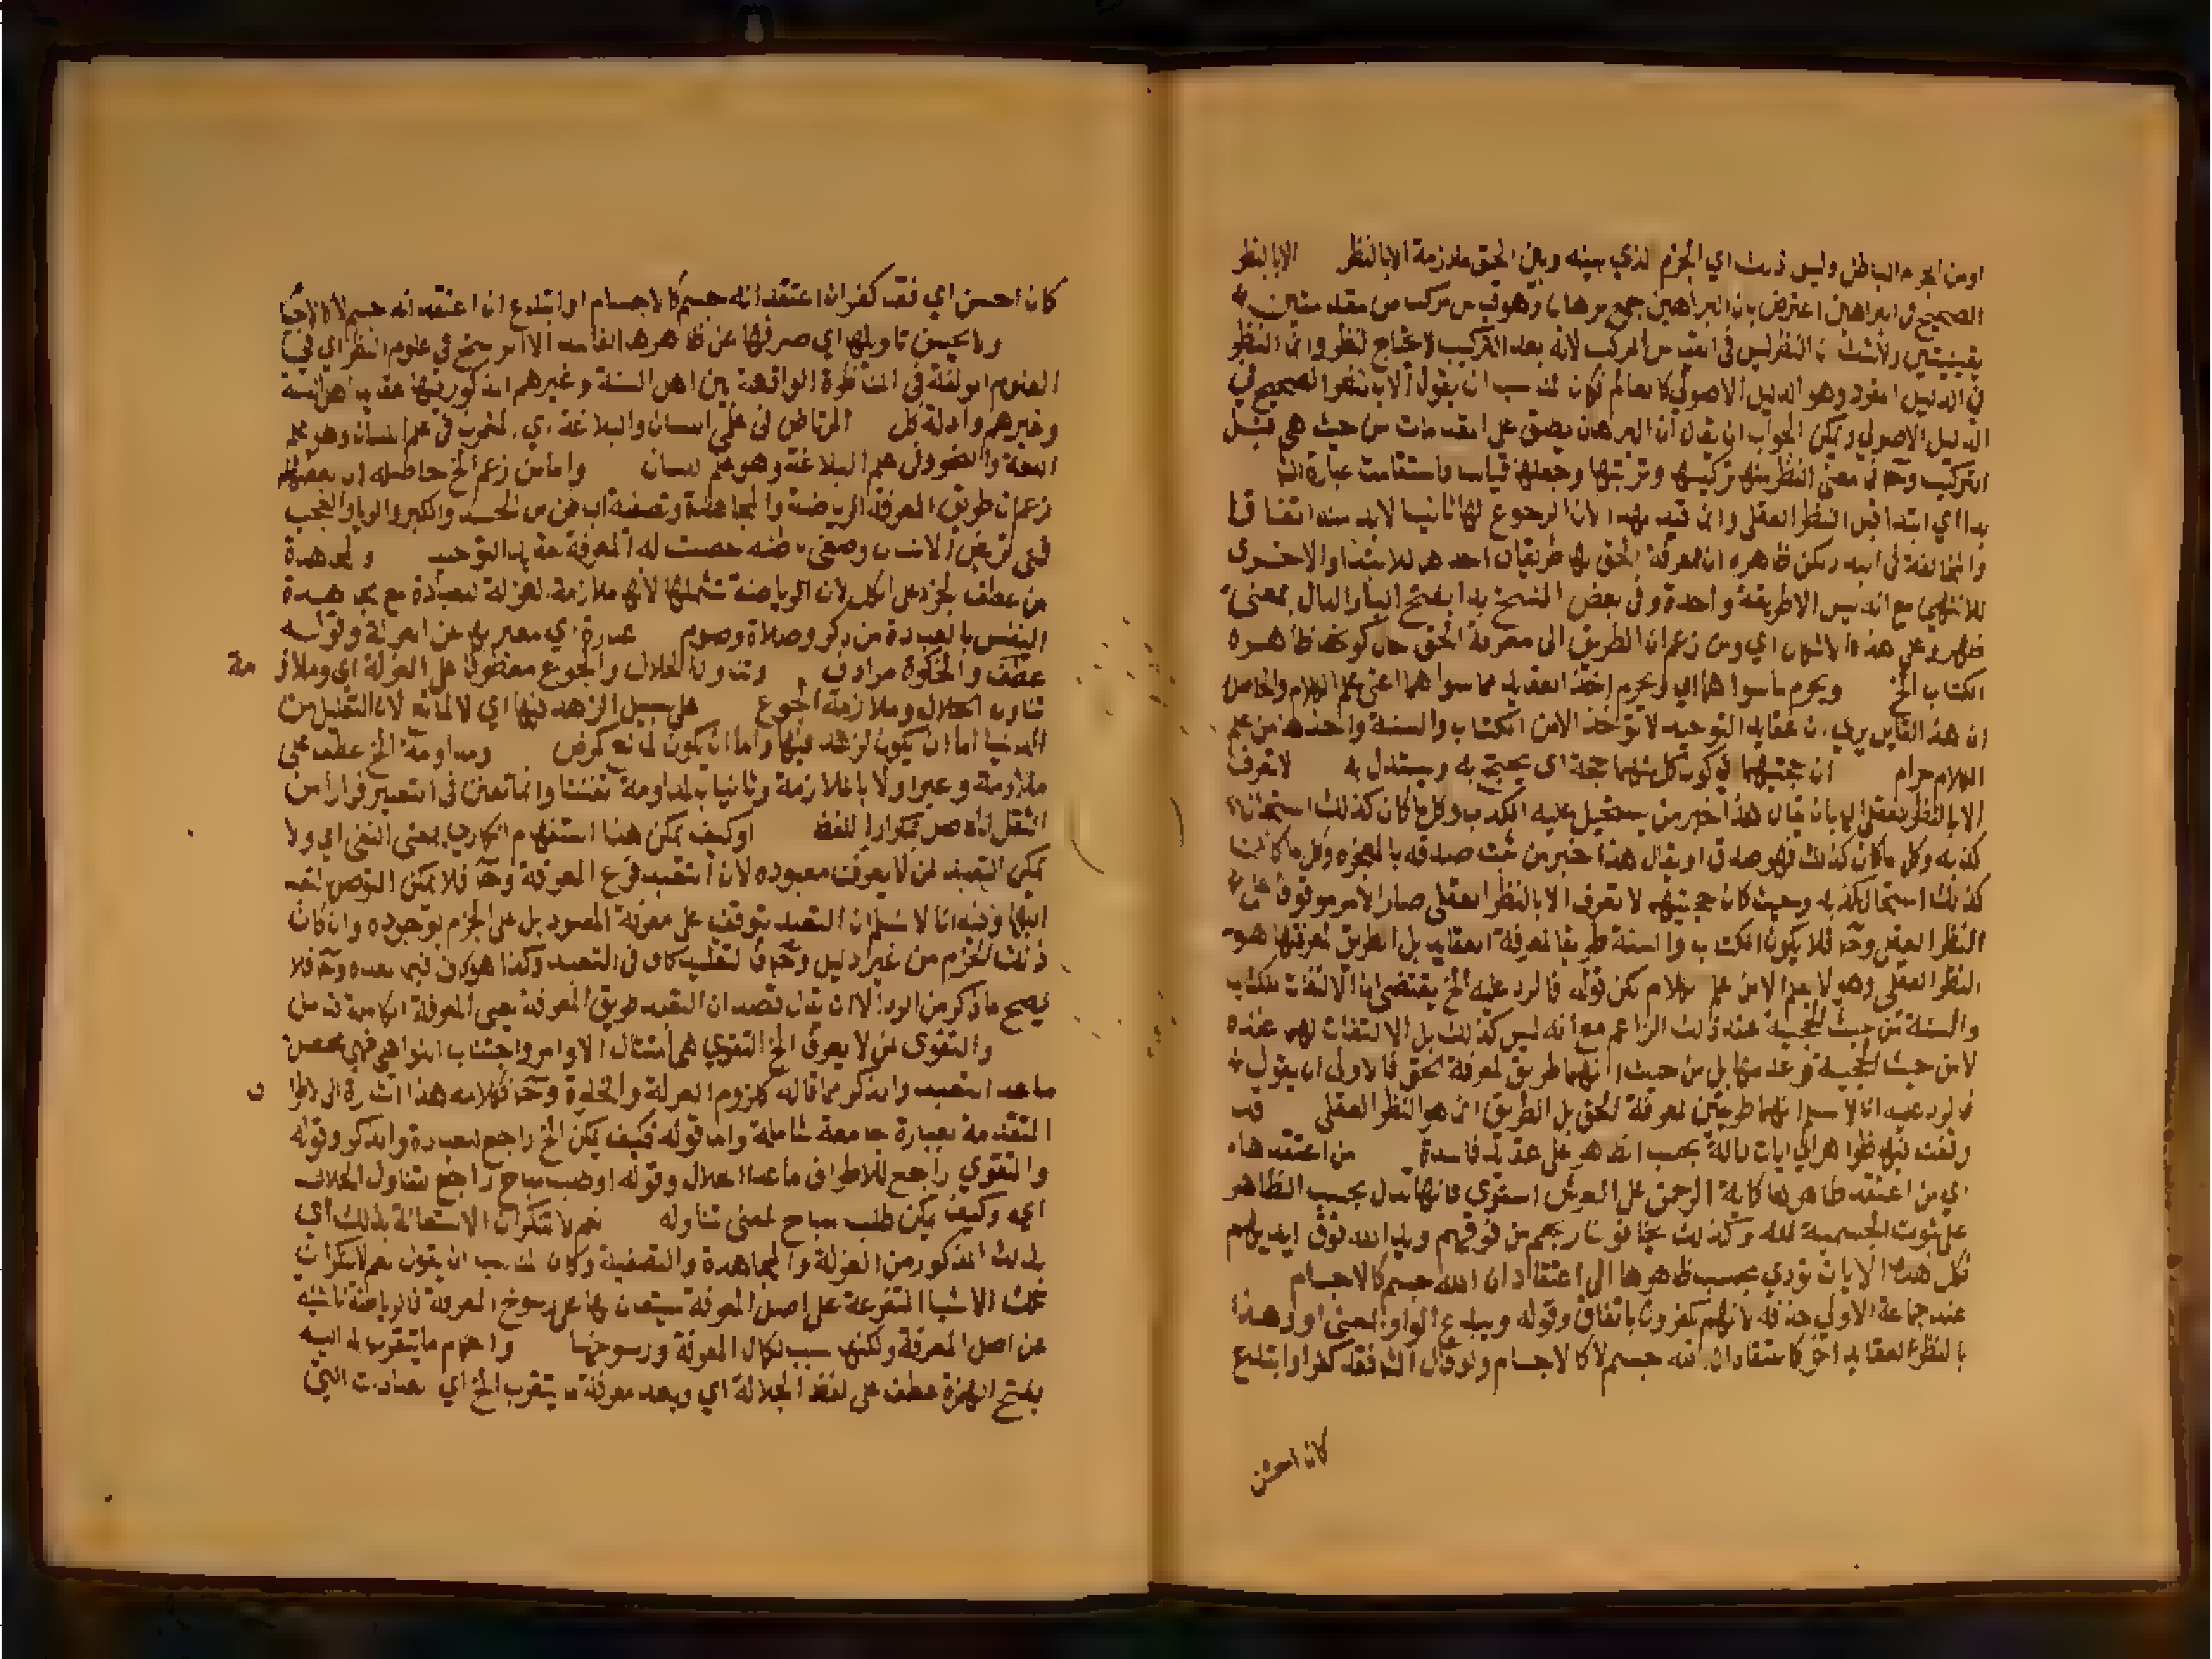 اومن الجزم الباطل وليس ذلك اي الجزم الذي بينه وبين الحق ملازمة الا بالنظر الا بالنظر
الصحيح في البراهين اعترض بان البراهين جمع برهان وهو ما من مركب من مقدمتين
يقينيتين ولا شك ان النظر ليس في المركب لانه بعد التركيب لا يحتاج لنظر وانما النظر
في الدليل المفرد وهو الدليل الاصولي كالعالم فكان المناسب ان يقول الا بالنظر الصحيح في
الدليل الاصولي ويمكن الجواب ان يقال ان البرهان يصدق على المقدمات من حيث هي قبل
التركيب وح فمعنى النظر منها تركيبها وترتيبها وجعلها قياسا فاستقامت عبارة الش
بدا اي ابتدا قبل النظر العقلي وانما قيد بهذا لان الرجوع لها ثانيا لابد منه اتفاقا
والمخالفة في لكن ظاهره ان لمعرفة الحق بها طريقان احدهما للابتدا والاخرى
للانتهي مع انه ليس الا طريقة واحدة وفي بعض النسخ بدا بفتح الباء والدال بمعنى
ظهر وعلى هذا الاشكال اي ومن زعم ان الطريق الى معرفة الحق حال كونه ظاهره
الكتاب الخ ويحرم ما سواهما اي ويحرم اخذ العقايد مما سواهما اعني علم الكلام والحاصل
ان هذا القايل يرى ان عقايد التوحيد لا تؤخذ الا من الكتاب والسنة واخذها من علم
الكلام حرام ان حجيتهما اي كون كل منهما حجة اي يحتج به ويستدل به لا تعرف
الا بالنظر العقلي اي بان يقال هذا خبر من يستحيل عليه الكذب وكل ما كان كذلك استحال
كذبه وكل ما كان كذلك فهو صدق او يقال هذا خبر من ثبت صدقه بالمعجزة وكل ما كان
كذلك استحال كذبه وحيث كان حجيتهما لا تعرف الا بالنظر العقلي صار الامر موقوفا على
النظر العقلي وح فلا يكون الكتاب والسنة طريقا لمعرفة العقايد بل الطريق لمعرفتها هو
النظر العقلي وهو لا يعلم الا من علم الكلام لكن قوله فالرد عليه الخ يقتضي ان الالتفات للكتاب
والسنة من حيث الحجية عند ذلك الزاعم مع انه ليس كذلك بل الالتفات لهما عنده
لا من حيث الحجية وعدمها بل من حيث انهما طريق لمعرفة الحق فالاولى ان يقول
فالرد عليه انا لا نسلم انهما طريقين لمعرفة الحق بل الطريق انما هو النظر العقلي قد
وقعت فيهما ظواهر اي ايات دالة بحسب الظاهر على عقايد فاسدة من اعتقدها
اي من اعتقد ظاهرها كاية الرحمن على العرش استوى فانها تدل بحسب الظاهر
على ثبوت الجسمية لله وكذلك يخافون ربهم من فوقهم ويد الله فوق ايديهم
فكل هذه الايات تودي بحسب ظاهرها الى اعتقاد ان الله جسم كالاجسام
عند جماعة الاولى حذفه لانهم يكفرون باتفاق وقوله ويبدع الواو بمعنى او وهذا
بالنظر لعقايد اخر كاعتقاد ان الله جسم لا كالاجسام ولو قال الش فقد كفر او ابتدع
كان احسن
كان احسن اي فقد كفر ان اعتقد انه جسم كالاجسام او ابتدع ان اعتقد انه جسم لا كالاجسام
ولا يحسن تاويلها اي صرفها عن ظاهرها الفاسد الا الراسخ في علوم النظر اي في
العلوم المولفة في المناظرة الواقعة بين اهل السنة وغيرهم المذكور فيها عقايد اهل السنة
وغيرهم وادلة كل المرتاض في علمي اللسان والبلاغة اي المتمرن في علم اللسان وهو علم
اللغة والنحو وفي علم البلاغة وهو علم البيان واما من زعم الخ حاصله ان بعضهم
زعم ان طريق المعرفة الرياضة والمجاهدة وتصفية الباطن من الحسد والكبر والريا والعجب
فمتى تريض الانسان وصفى باطنه حصلت له المعرفة عقايد التوحيد والمجاهدة
من عطف الجزء على الكل لان الرياضة تشملها لانها ملازمة العزلة للعبادة مع مجاهدة
النفس بالعبادة من ذكر وصلاة وصوم عبارة اي معبر بها عن العزلة وقوله
عطف والخلوة مرادف وتناول الحلال والجوع معطوف على العزلة اي وملازمة
تناول الحلال وملازمة الجوع على سبيل الزهد فيها اي لا لمانع لان التقليل من
الدنيا اما ان يكون لزهد فيها واما ان يكون لمانع كمرض ومداومة الخ عطف على
ملازمة وعبر اولا بالملازمة وثانيا بالمداومة تفننا وانما تفنن في التعبير فرارا من
الثقل الحاصل بتكرار اللفظ او كيف يمكن هذا استفهام انكاري بمعنى النفي اي ولا
يمكن التعبد لمن لا يعرف معبوده لان التعبد فرع المعرفة وح فلا يمكن التوصل بالتعبد
اليها وفيه انا لا نسلم ان التعبد يتوقف على معرفة المعبود بل على الجزم بوجوده وان كان
ذلك الجزم من غير دليل وح فالتقليد كاف في التعبد وكذا هو كاف فيما بعده وح فلا
يصح ما ذكر من الرد الا ان يقال قصد ان التعبد طريق المعرفة يعني المعرفة الكاملة تامل
والتقوى لمن لا يعرف الخ التقوى هي امتثال الاوامر واجتناب النواهي فهي بمعنى
ما عدا التعبد والذكر مما قاله كلزوم العزلة والخلوة وح فكلامه هذا اشارة الى الاطراف
المتقدمة بعبارة جامعة شاملة واما قوله فكيف يمكن الخ راجع للعبادة والذكر وقوله
والتقوى راجع للاطراف ما عدا الحلال وقوله او طلب مباح راجع لتناول الحلال
اي وكيف يمكن طلب مباح لمعنى تناوله نعم لا تنكر ان الاستعانة بذلك اي
بذلك المذكور من العزلة والمجاهدة والتصفية وكان المناسب ان يقول نعم لا ننكر ان
تلك الاشيا المتفرعة على اصل المعرفة يستعان بها على رسوخ المعرفة فالرياضة ناشئة
عن اصل المعرفة ولكنها سبب لكمال المعرفة ورسوخها واحكام ما يتقرب به اليه
بفتح الهمزة عطف على لفظ الجلالة اي وبعد معرفة ما يتقرب الخ اي العبادات التي